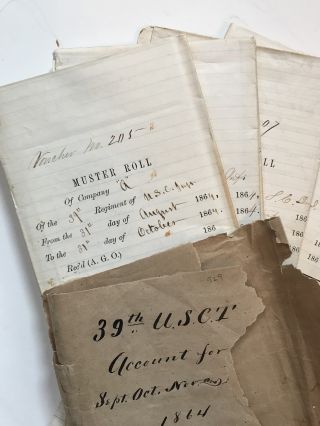 Voucher No. 205
MUSTER ROLL
Of Company "A"
Of the 39th Regiment of U.S.C. Inf.
From the 31st day of August 1864,
To the 31st day of October 1864.
Rec'd (A. G. O.) 186
1864,
1864.
186
07
LL
186
186
929
39th U.S.C.T
Account for
Sept. Oct. Nov.
1864